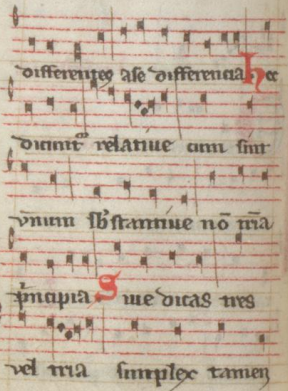 differentes a se differencia hec
dicunt~ relatiue cum sint
vnum sb̄stantiue nō tria
p̄ncipia Siue dicas tres
vel tria simplex tamen